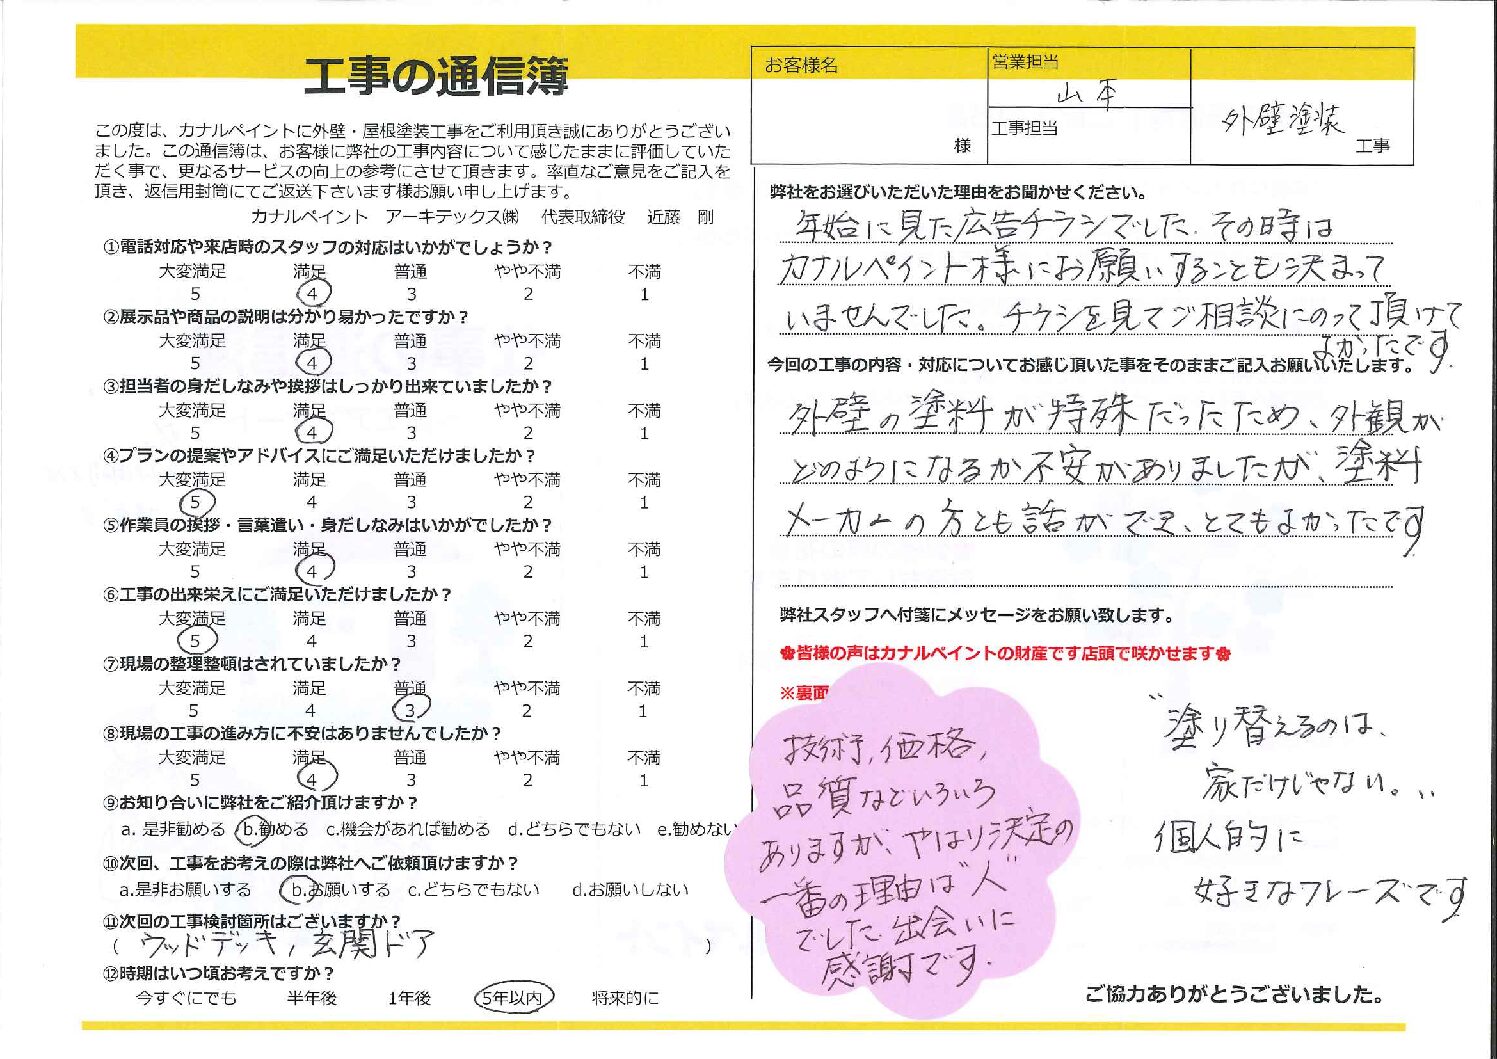 工事の通信簿
この度は、カナルペイントに外壁・屋根塗装工事をご利用頂き誠にありがとうござい
ました。この通信簿は、お客様に弊社の工事内容について感じたままに評価していた
だく事で、更なるサービスの向上の参考にさせて頂きます。率直なご意見をご記入を
頂き、返信用封筒にてご返送下さいます様お願い申し上げます。
カナルペイント アーキテックス㈱ 代表取締役 近藤 剛
①電話対応や来店時のスタッフの対応はいかがでしょうか？
大変満足 満足 普通 やや不満 不満
5 4 3 2 1
②展示品や商品の説明は分かり易かったですか？
大変満足 満足 普通 やや不満 不満
5 4 3 2 1
③担当者の身だしなみや挨拶はしっかり出来ていましたか？
大変満足 満足 普通 やや不満 不満
5 4 3 2 1
④プランの提案やアドバイスにご満足いただけましたか？
大変満足 満足 普通 やや不満 不満
5 4 3 2 1
⑤作業員の挨拶・言葉遣い・身だしなみはいかがでしたか？
大変満足 満足 普通 やや不満 不満
5 4 3 2 1
⑥工事の出来栄えにご満足いただけましたか？
大変満足 満足 普通 やや不満 不満
5 4 3 2 1
⑦現場の整理整頓はされていましたか？
大変満足 満足 普通 やや不満 不満
5 4 3 2 1
⑧現場の工事の進み方に不安はありませんでしたか？
大変満足 満足 普通 やや不満 不満
5 4 3 2 1
⑨お知り合いに弊社をご紹介頂けますか？
a. 是非勧める b.勧める c.機会があれば勧める d.どちらでもない e.勧めない
⑩次回、工事をお考えの際は弊社へご依頼頂けますか？
a.是非お願いする b.お願いする c.どちらでもない d.お願いしない
⑪次回の工事検討箇所はございますか？
( ウッドデッキ, 玄関ドア )
⑫時期はいつ頃お考えですか？
今すぐにでも 半年後 1年後 5年以内 将来的に
お客様名
様
営業担当
山本
工事担当
外壁塗装
工事
弊社をお選びいただいた理由をお聞かせください。
年始に見た広告チラシでした. その時は
カナルペイント様にお願いすることも決まって
いませんでした。チラシを見てご相談にのって頂けて
よかったです.
今回の工事の内容・対応についてお感じ頂いた事をそのままご記入お願いいたします。
外壁の塗料が特殊だったため、外観が
どのようになるか不安がありましたが、塗料
メーカーの方とも話ができ、とてもよかったです
弊社スタッフへ付箋にメッセージをお願い致します。
✿皆様の声はカナルペイントの財産です店頭で咲かせます✿
※裏面
技術, 価格,
品質などいろいろ
ありますが、やはり決定の
一番の理由は"人"
でした. 出会いに
感謝です.
"塗り替えるのは、
家だけじゃない。"
個人的に
好きなフレーズです
ご協力ありがとうございました。